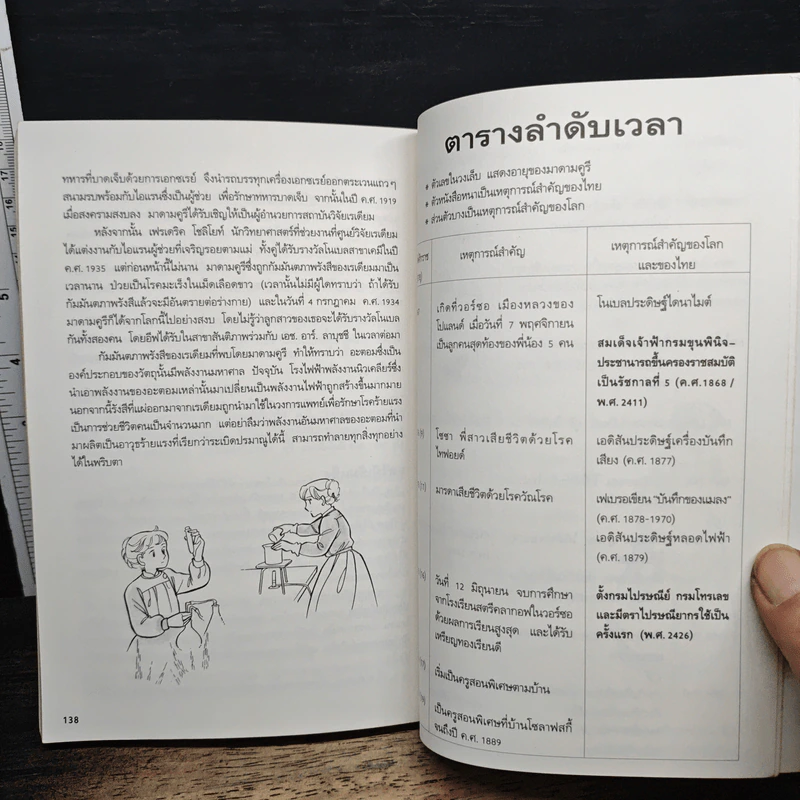 ทหารที่บาดเจ็บด้วยการเอกซเรย์ จึงนำรถบรรทุกเครื่องเอกซเรย์ออกตระเวนแถวๆ
สนามรบพร้อมกับไอแรนซึ่งเป็นผู้ช่วย เพื่อรักษาทหารบาดเจ็บ จากนั้นในปี ค.ศ. 1919
เมื่อสงครามสงบลง มาดามคูรีได้รับเชิญให้เป็นผู้อำนวยการสถาบันวิจัยเรเดียม
หลังจากนั้น เฟรเดริค โชลิโยท์ นักวิทยาศาสตร์ที่ช่วยงานที่ศูนย์วิจัยเรเดียม
ได้แต่งงานกับไอแรนผู้ช่วยที่เจริญรอยตามแม่ ทั้งคู่ได้รับรางวัลโนเบลสาขาเคมีในปี
ค.ศ. 1935 แต่ก่อนหน้านี้ไม่นาน มาดามคูรีซึ่งถูกกัมมันตภาพรังสีของเรเดียมมาเป็น
เวลานาน ป่วยเป็นโรคมะเร็งในเม็ดเลือดขาว (เวลานั้นไม่มีผู้ใดทราบว่า ถ้าได้รับ
กัมมันตภาพรังสีแล้วจะมีอันตรายต่อร่างกาย) และในวันที่ 4 กรกฎาคม ค.ศ. 1934
มาดามคูรีก็ได้จากโลกนี้ไปอย่างสงบ โดยไม่รู้ว่าลูกสาวของเธอจะได้รับรางวัลโนเบล
กันทั้งสองคน โดยอีฟได้รับในสาขาสันติภาพร่วมกับ เอช. อาร์. ลาบุชชี ในเวลาต่อมา
กัมมันตภาพรังสีของเรเดียมที่พบโดยมาดามคูรี ทำให้ทราบว่า อะตอมซึ่งเป็น
องค์ประกอบของวัตถุนั้นมีพลังงานมหาศาล ปัจจุบัน โรงไฟฟ้าพลังงานนิวเคลียร์ซึ่ง
นำเอาพลังงานของอะตอมเหล่านั้นมาเปลี่ยนเป็นพลังงานไฟฟ้าถูกสร้างขึ้นมากมาย
นอกจากนี้รังสีที่แผ่ออกมาจากเรเดียมถูกนำมาใช้ในวงการแพทย์เพื่อรักษาโรคร้ายแรง
เป็นการช่วยชีวิตคนเป็นจำนวนมาก แต่อย่าลืมว่าพลังงานอันมหาศาลของอะตอมที่นำ
มาผลิตเป็นอาวุธร้ายแรงที่เรียกว่าระเบิดปรมาณูได้นี้ สามารถทำลายทุกสิ่งทุกอย่าง
ได้ในพริบตา
138
ตารางลำดับเวลา
• ตัวเลขในวงเล็บ แสดงอายุของมาดามคูรี
• ตัวหนังสือหนาเป็นเหตุการณ์สำคัญของไทย
• ส่วนตัวบางเป็นเหตุการณ์สำคัญของโลก
เหตุการณ์สำคัญ
เหตุการณ์สำคัญของโลก
และของไทย
เกิดที่วอร์ซอ เมืองหลวงของ
โปแลนด์ เมื่อวันที่ 7 พฤศจิกายน
เป็นลูกคนสุดท้องของพี่น้อง 5 คน
โนเบลประดิษฐ์ไดนาไมต์
สมเด็จเจ้าฟ้ากรมขุนพินิจ–
ประชานารถขึ้นครองราชสมบัติ
เป็นรัชกาลที่ 5 (ค.ศ.1868 /
พ.ศ. 2411)
โซชา พี่สาวเสียชีวิตด้วยโรค
ไทฟอยด์
เอดิสันประดิษฐ์เครื่องบันทึก
เสียง (ค.ศ. 1877)
มารดาเสียชีวิตด้วยโรควัณโรค
เฟเบรอเขียน "บันทึกของแมลง"
(ค.ศ. 1878-1970)
เอดิสันประดิษฐ์หลอดไฟฟ้า
(ค.ศ. 1879)
วันที่ 12 มิถุนายน จบการศึกษา
จากโรงเรียนสตรีคลากอฟในวอร์ซอ
ด้วยผลการเรียนสูงสุด และได้รับ
เหรียญทองเรียนดี
ตั้งกรมไปรษณีย์ กรมโทรเลข
และมีตราไปรษณียากรใช้เป็น
ครั้งแรก (พ.ศ. 2426)
เริ่มเป็นครูสอนพิเศษตามบ้าน
เป็นครูสอนพิเศษที่บ้านโซลาฟสกี้
จนถึงปี ค.ศ. 1889